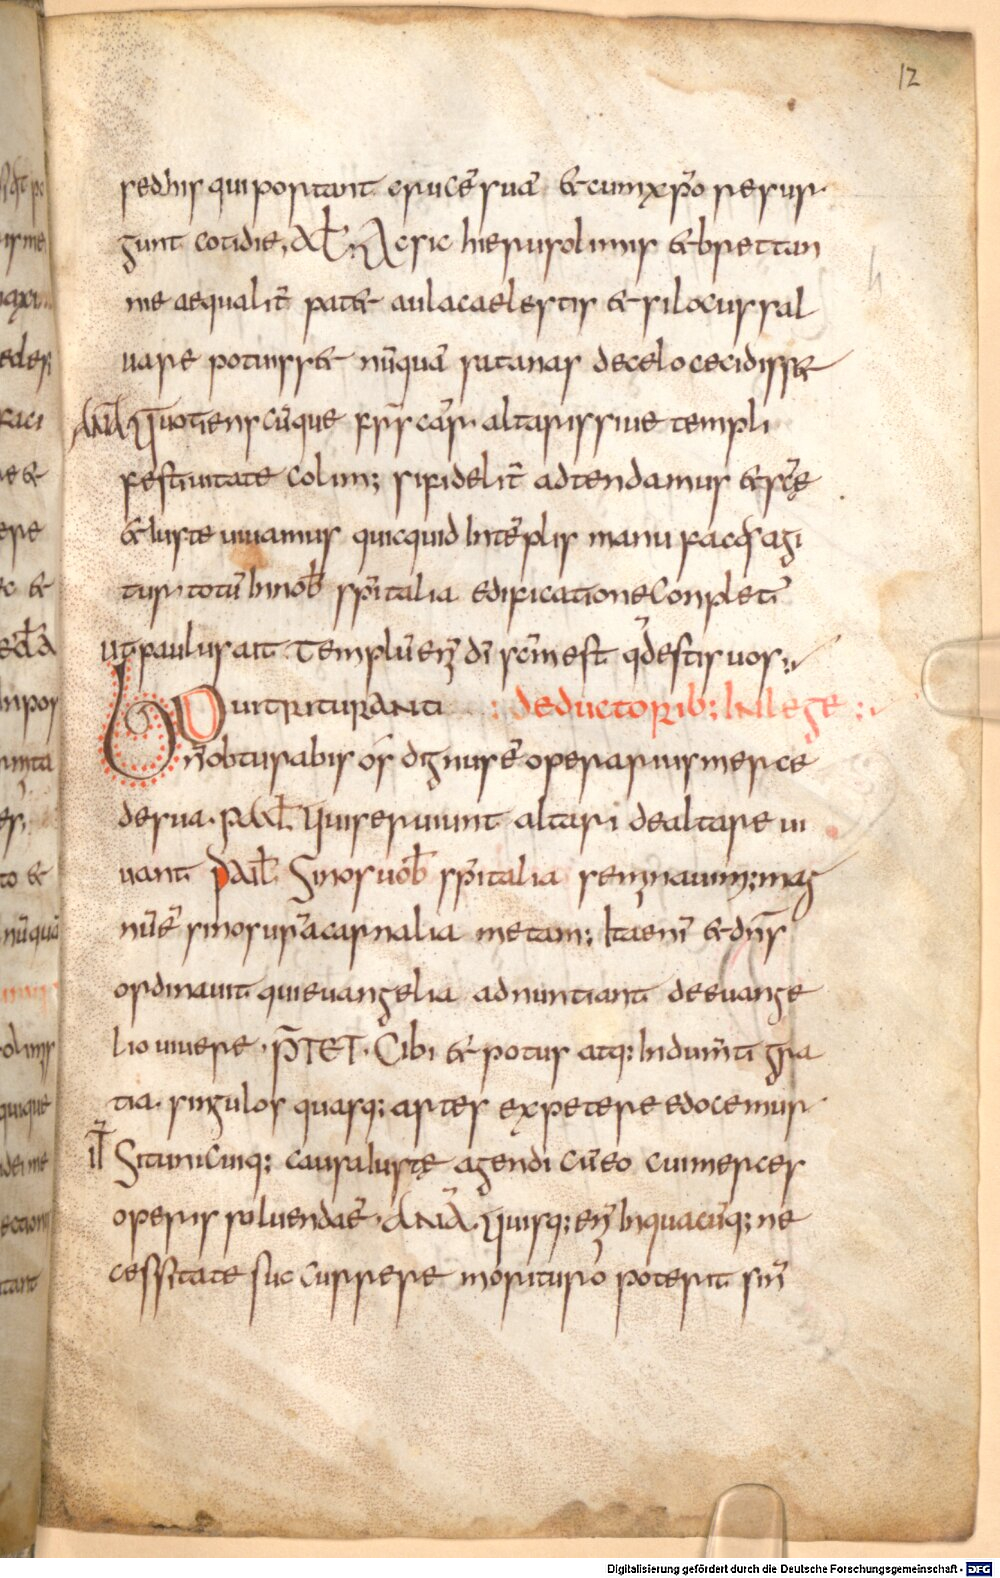 12
sed his qui portant crucē suā & cum xp̄o resur
gunt cotidie, AL̄ Ac sic hierusolimis & brettan
nie aequalit̄ pat& aula caelestis & si locus sal
vare potuiss& nūquā satanas de celo cecidiss&
ANĀ Quotienscūque fr̄s car̄ altaris sive templi
festivitate colim; si fidelit̄ adtendamus & scē
& iuste vivamus quicquid in tēplis manu factis agi
tur totū in nob̄ sp̄italia edificatione conpletū
ut paulus ait templū en̄ dī scm̄ est qd̄ estis vos
Bovi trituranti : de ductorib; in lege :
n̄ obturabis os dignus ē operarius merce
de sua. PAL̄ Qui serviunt altari de altare vi
vant PAL̄ Si nos vob̄ sp̄italia seminavim; mag
nū ē si nos vr̄a carnalia metam; Ita enī & dn̄s
ordinavit qui evangelia adnuntiant de evange
lio vivere. P̄TET. Cibi & potus atq; indum̄ti gra
tia. singulos quasq; artes expetere edocemur
Situnicuiq; causa iustę agendi cū eo cui merces
operis solvenda ē. ANĀ. Quisq; en̄ in quacūq; ne
cessitate succurrere morituro poterit sin̄
Digitalisierung gefördert durch die Deutsche Forschungsgemeinschaft - DFG